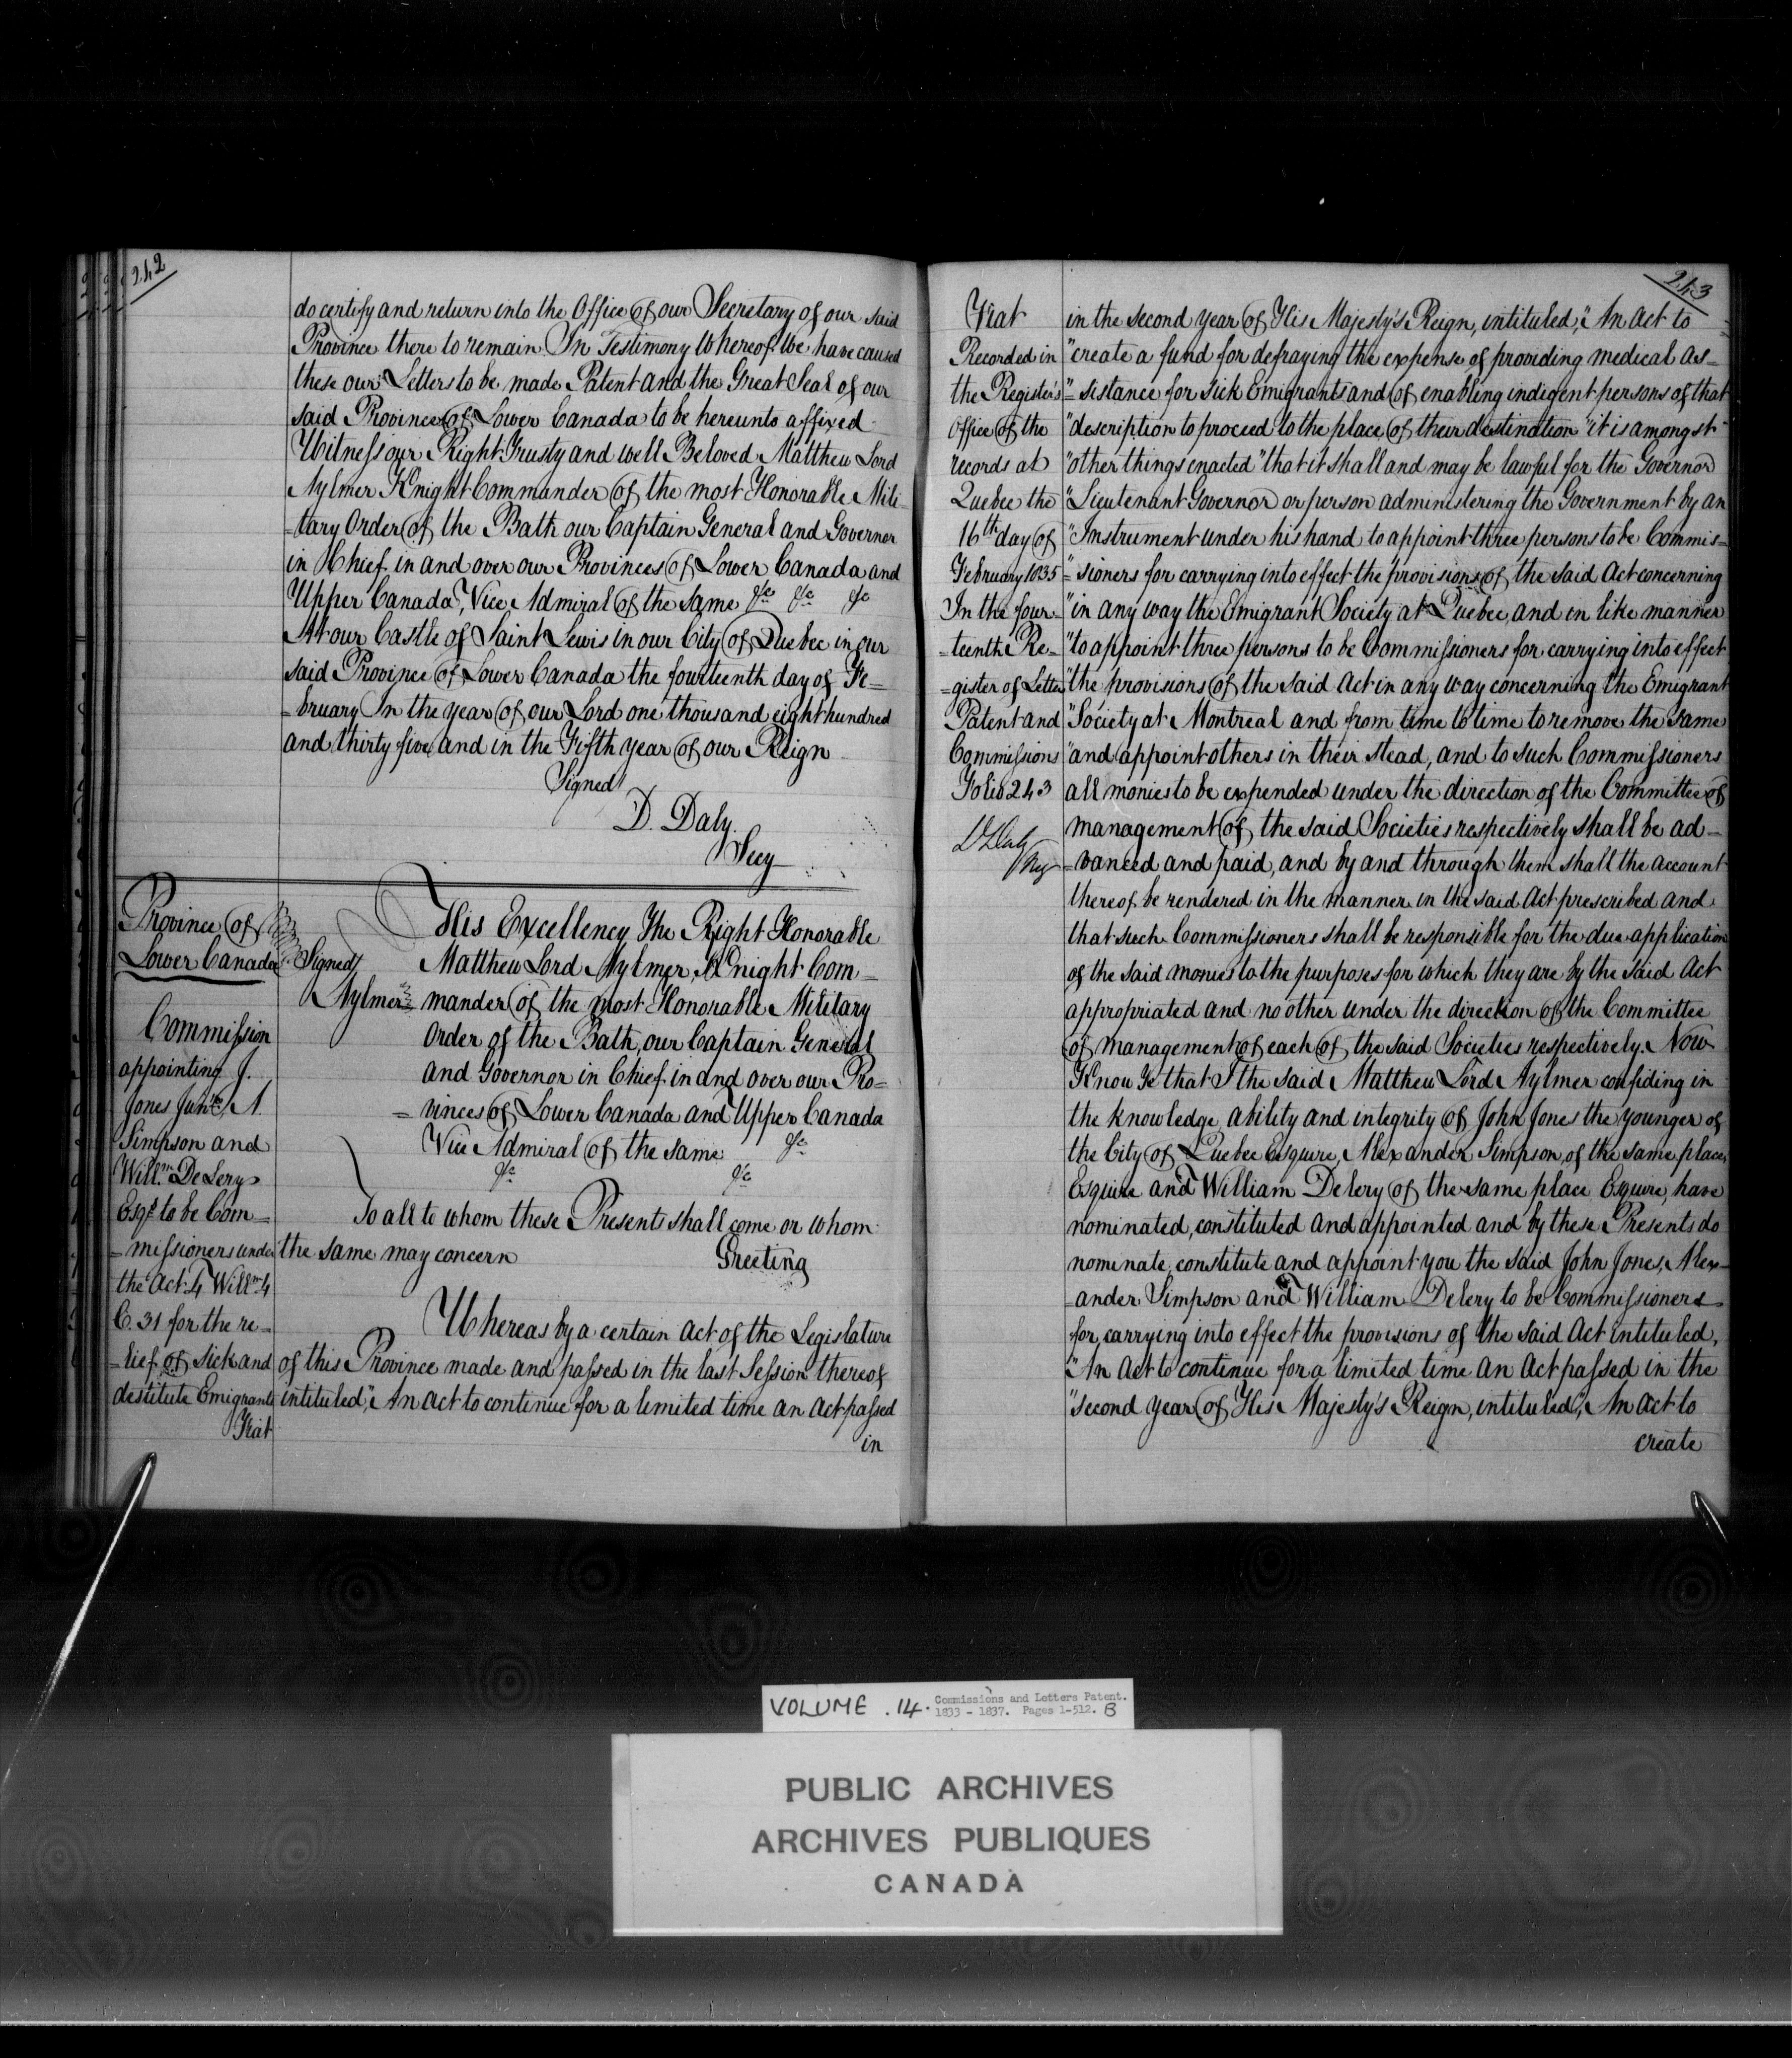 242
do certify and return into the Office of our Secretary of our said
Province there to remain In Testimony Whereof We have caused
these our Letters to be made Patent and the Great Seal of our
said Province of Lower Canada to be hereunto affixed
Witness our Right Trusty and well Beloved Matthew Lord
Aylmer Knight Commander of the most Honorable Mili-
=tary Order of the Bath our Captain General and Governor
in Chief in and over our Provinces of Lower Canada and
Upper Canada, Vice Admiral of the same &c &c &c
At our Castle of Saint Lewis in our City of Quebec in our
said Province of Lower Canada the fourteenth day of Fe=
=bruary In the year of our Lord one thousand eight hundred
and thirty five and in the Fifth year of our Reign
Signed
D. Daly
Secy
Province of
Lower Canada
Commission
appointing J.
Jones Junr. A.
Simpson and
Willm. DeLery
Esqrs to be Com=
=missioners under
the Act 4 Willm 4
C. 31 for the re=
=lief of Sick and
destitute Emigrants
Fiat
Signed
Aylmer
His Excellency The Right Honorable
Matthew Lord Aylmer, Knight Com=
mander of the most Honorable Military
Order of the Bath, our Captain General
and Governor in Chief in and over our Pro=
=vinces of Lower Canada and Upper Canada
Vice Admiral of the same &c
&c &c
To all to whom these Presents shall come or whom
the same may concern Greeting
Whereas by a certain Act of the Legislature
of this Province made and passed in the last Session thereof
intituled, "An Act to continue for a limited time an Act passed
in
243
Fiat
Recorded in
the Register's
Office of the
records at
Quebec the
16th day of
February 1835
In the four=
=teenth Re=
=gister of Letters
Patent and
Commissions
Folio 243
D Daly
Reg
in the second year of His Majesty's Reign, intituled, "An Act to
"create a fund for defraying the expense of providing medical as=
"=sistance for sick Emigrants and of enabling indigent persons of that
"description to proceed to the place of their destination" it is amongst
"other things enacted "that it shall and may be lawful for the Governor
"Lieutenant Governor or person administering the Government by an
"Instrument under his hand to appoint three persons to be Commis=
"=sioners for carrying into effect the provisions of the said Act concerning
"in any way the Emigrant Society at Quebec, and in like manner
"to appoint three persons to be Commissioners for carrying into effect
"the provisions of the said Act in any way concerning the Emigrant
"Society at Montreal and from time to time to remove the same
"and appoint others in their stead, and to such Commissioners
all monies to be expended under the direction of the Committee of
management of the said Societies respectively shall be ad=
=vanced and paid, and by and through them shall the account
thereof be rendered in the manner in the said Act prescribed and
that such Commissioners shall be responsible for the due application
of the said monies to the purposes for which they are by the said Act
appropriated and no other under the direction of the Committee
of management of each of the said Societies respectively. Now
Know Ye that I the said Matthew Lord Aylmer confiding in
the knowledge, ability and integrity of John Jones the younger of
the City of Quebec Esquire, Alexander Simpson, of the same place,
Esquire and William Delery of the same place Esquire, have
nominated, constituted and appointed and by these Presents do
nominate, constitute and appoint you the said John Jones, Alex=
=ander Simpson and William Delery to be Commissioners
for carrying into effect the provisions of the said Act intituled,
"An Act to continue for a limited time an Act passed in the
"second year of His Majesty's Reign, intituled, "An Act to
create
VOLUME .14. Commissions and Letters Patent.
1833 - 1837. Pages 1-512. B
PUBLIC ARCHIVES
ARCHIVES PUBLIQUES
CANADA